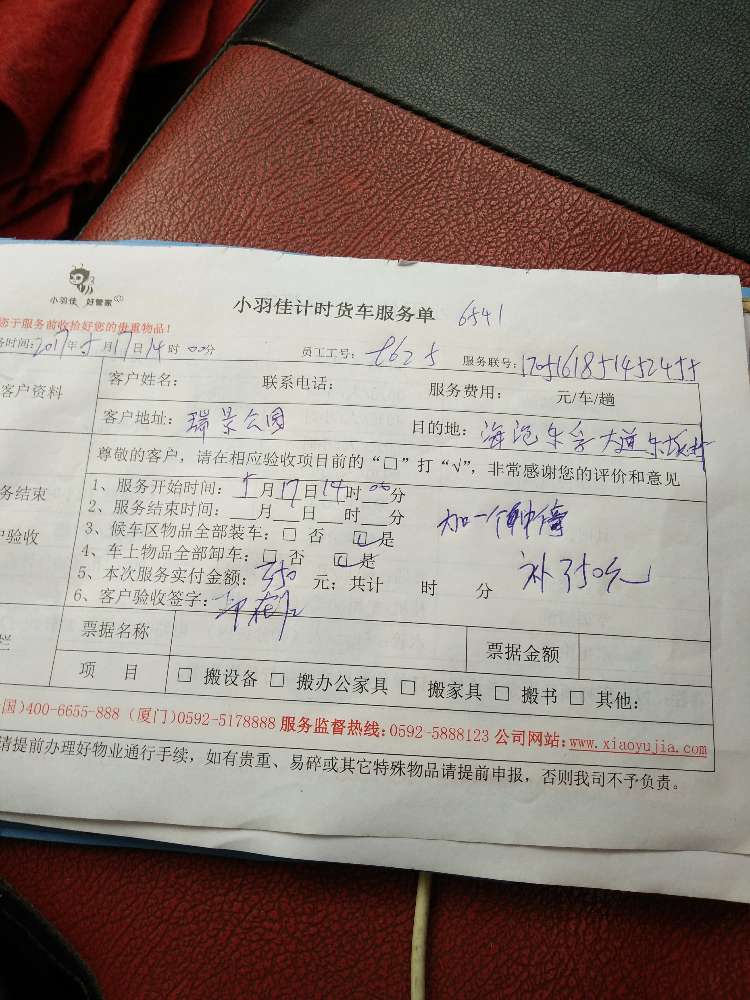 小羽佳 好管家
小羽佳计时货车服务单 6541
您于服务前收拾好您的贵重物品!
务时间:2017年5月17日14时00分 员工工号: 服务联号:1705161851452455
客户资料 客户姓名: 联系电话: 服务费用: 元/车/趟
客户地址:瑞景公园 目的地:海沧 大道
尊敬的客户,请在相应验收项目前的“□”打“√”,非常感谢您的评价和意见
务结束
户验收
1、服务开始时间:5月17日14时00分
2、服务结束时间:__月__日 时__分 加一个
3、候车区物品全部装车:□ 否 □ 是
4、车上物品全部卸车:□ 否 □ 是
5、本次服务实付金额:350 元;共计 时 分 补350元
6、客户验收签字:
栏 票据名称 票据金额
项 目 □ 搬设备 □ 搬办公家具 □ 搬家具 □ 搬书 □ 其他:
国)400-6655-888 (厦门)0592-5178888 服务监督热线:0592-5888123 公司网站:www.xiaoyujia.com
请提前办理好物业通行手续,如有贵重、易碎或其它特殊物品请提前申报,否则我司不予负责。